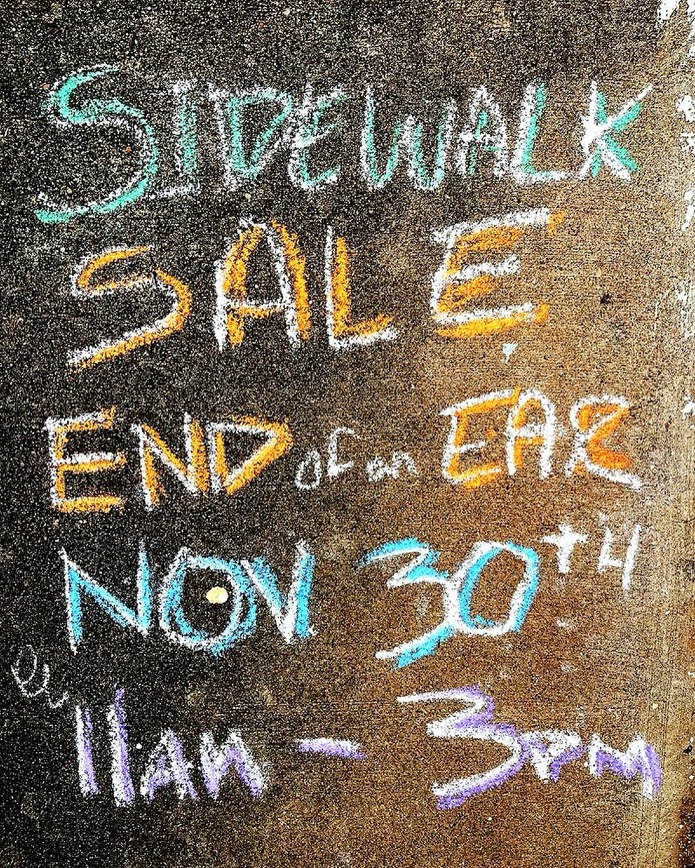 SIDEWALK
SALE
END of an EAR
NOV 30TH
11AM - 3PM